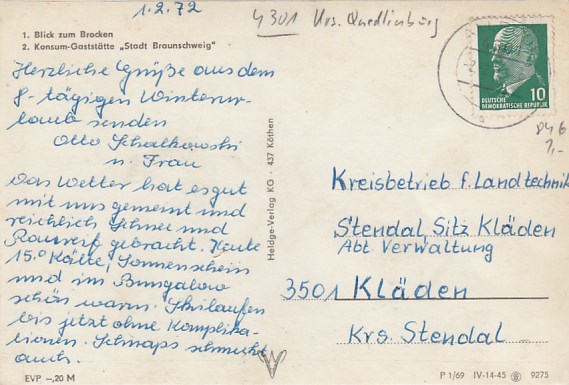 1.2.72
4301 Krs. Quedlinburg
1. Blick zum Brocken
2. Konsum-Gaststätte „Stadt Braunschweig"
Herzliche Grüße aus dem
8-tägigen Winterur-
laub senden
Otto Schalkowski
u. Frau
Das Wetter hat es gut
mit uns gemeint und
reichlich Schnee und
Rauhreif gebracht. Heute
15° Kälte, Sonnenschein
und im Bungalow
schön warm. Skilaufen
bis jetzt ohne Komplika-
tionen. Schnaps schmeckt
auch.
EVP –,20 M
Heldge-Verlag KG · 437 Köthen
10
DEUTSCHE
DEMOKRATISCHE REPUBLIK
1,-
Kreisbetrieb f. Landtechnik
Stendal Sitz Kläden
Abt. Verwaltung
3501 Kläden
Krs. Stendal
P 1/69 IV-14-45 9275